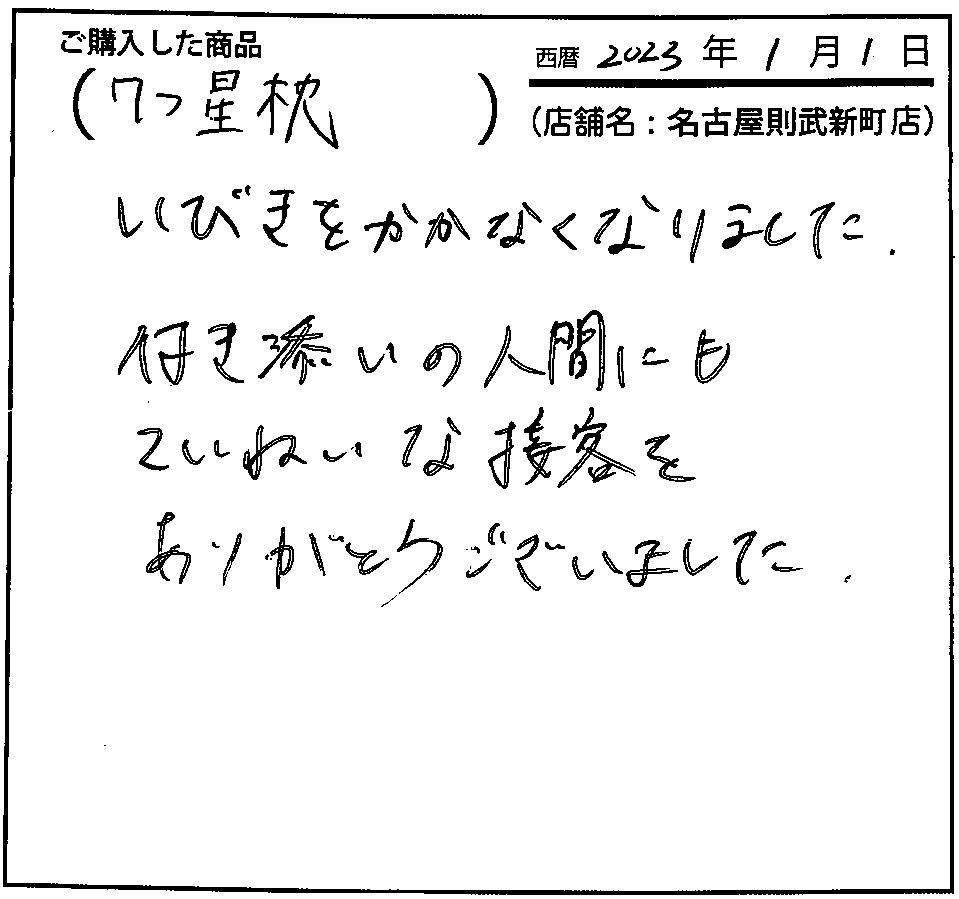 ご購入した商品
西暦 2023 年 1 月 1 日
(7つ星枕 )
(店舗名:名古屋則武新町店)
いびきをかかなくなりました.
付き添いの人間にも
ていねいな接客を
ありがとうございました.